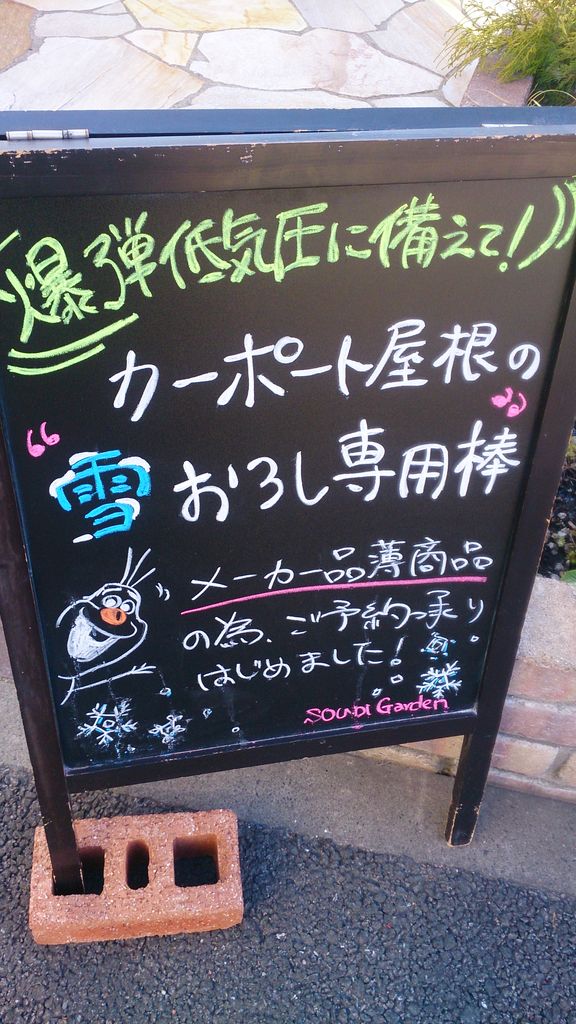 爆弾低気圧に備えて!
カーポート屋根の
"雪おろし専用棒"
メーカー品薄商品
の為、ご予約承り
はじめました!
SOUDI Garden